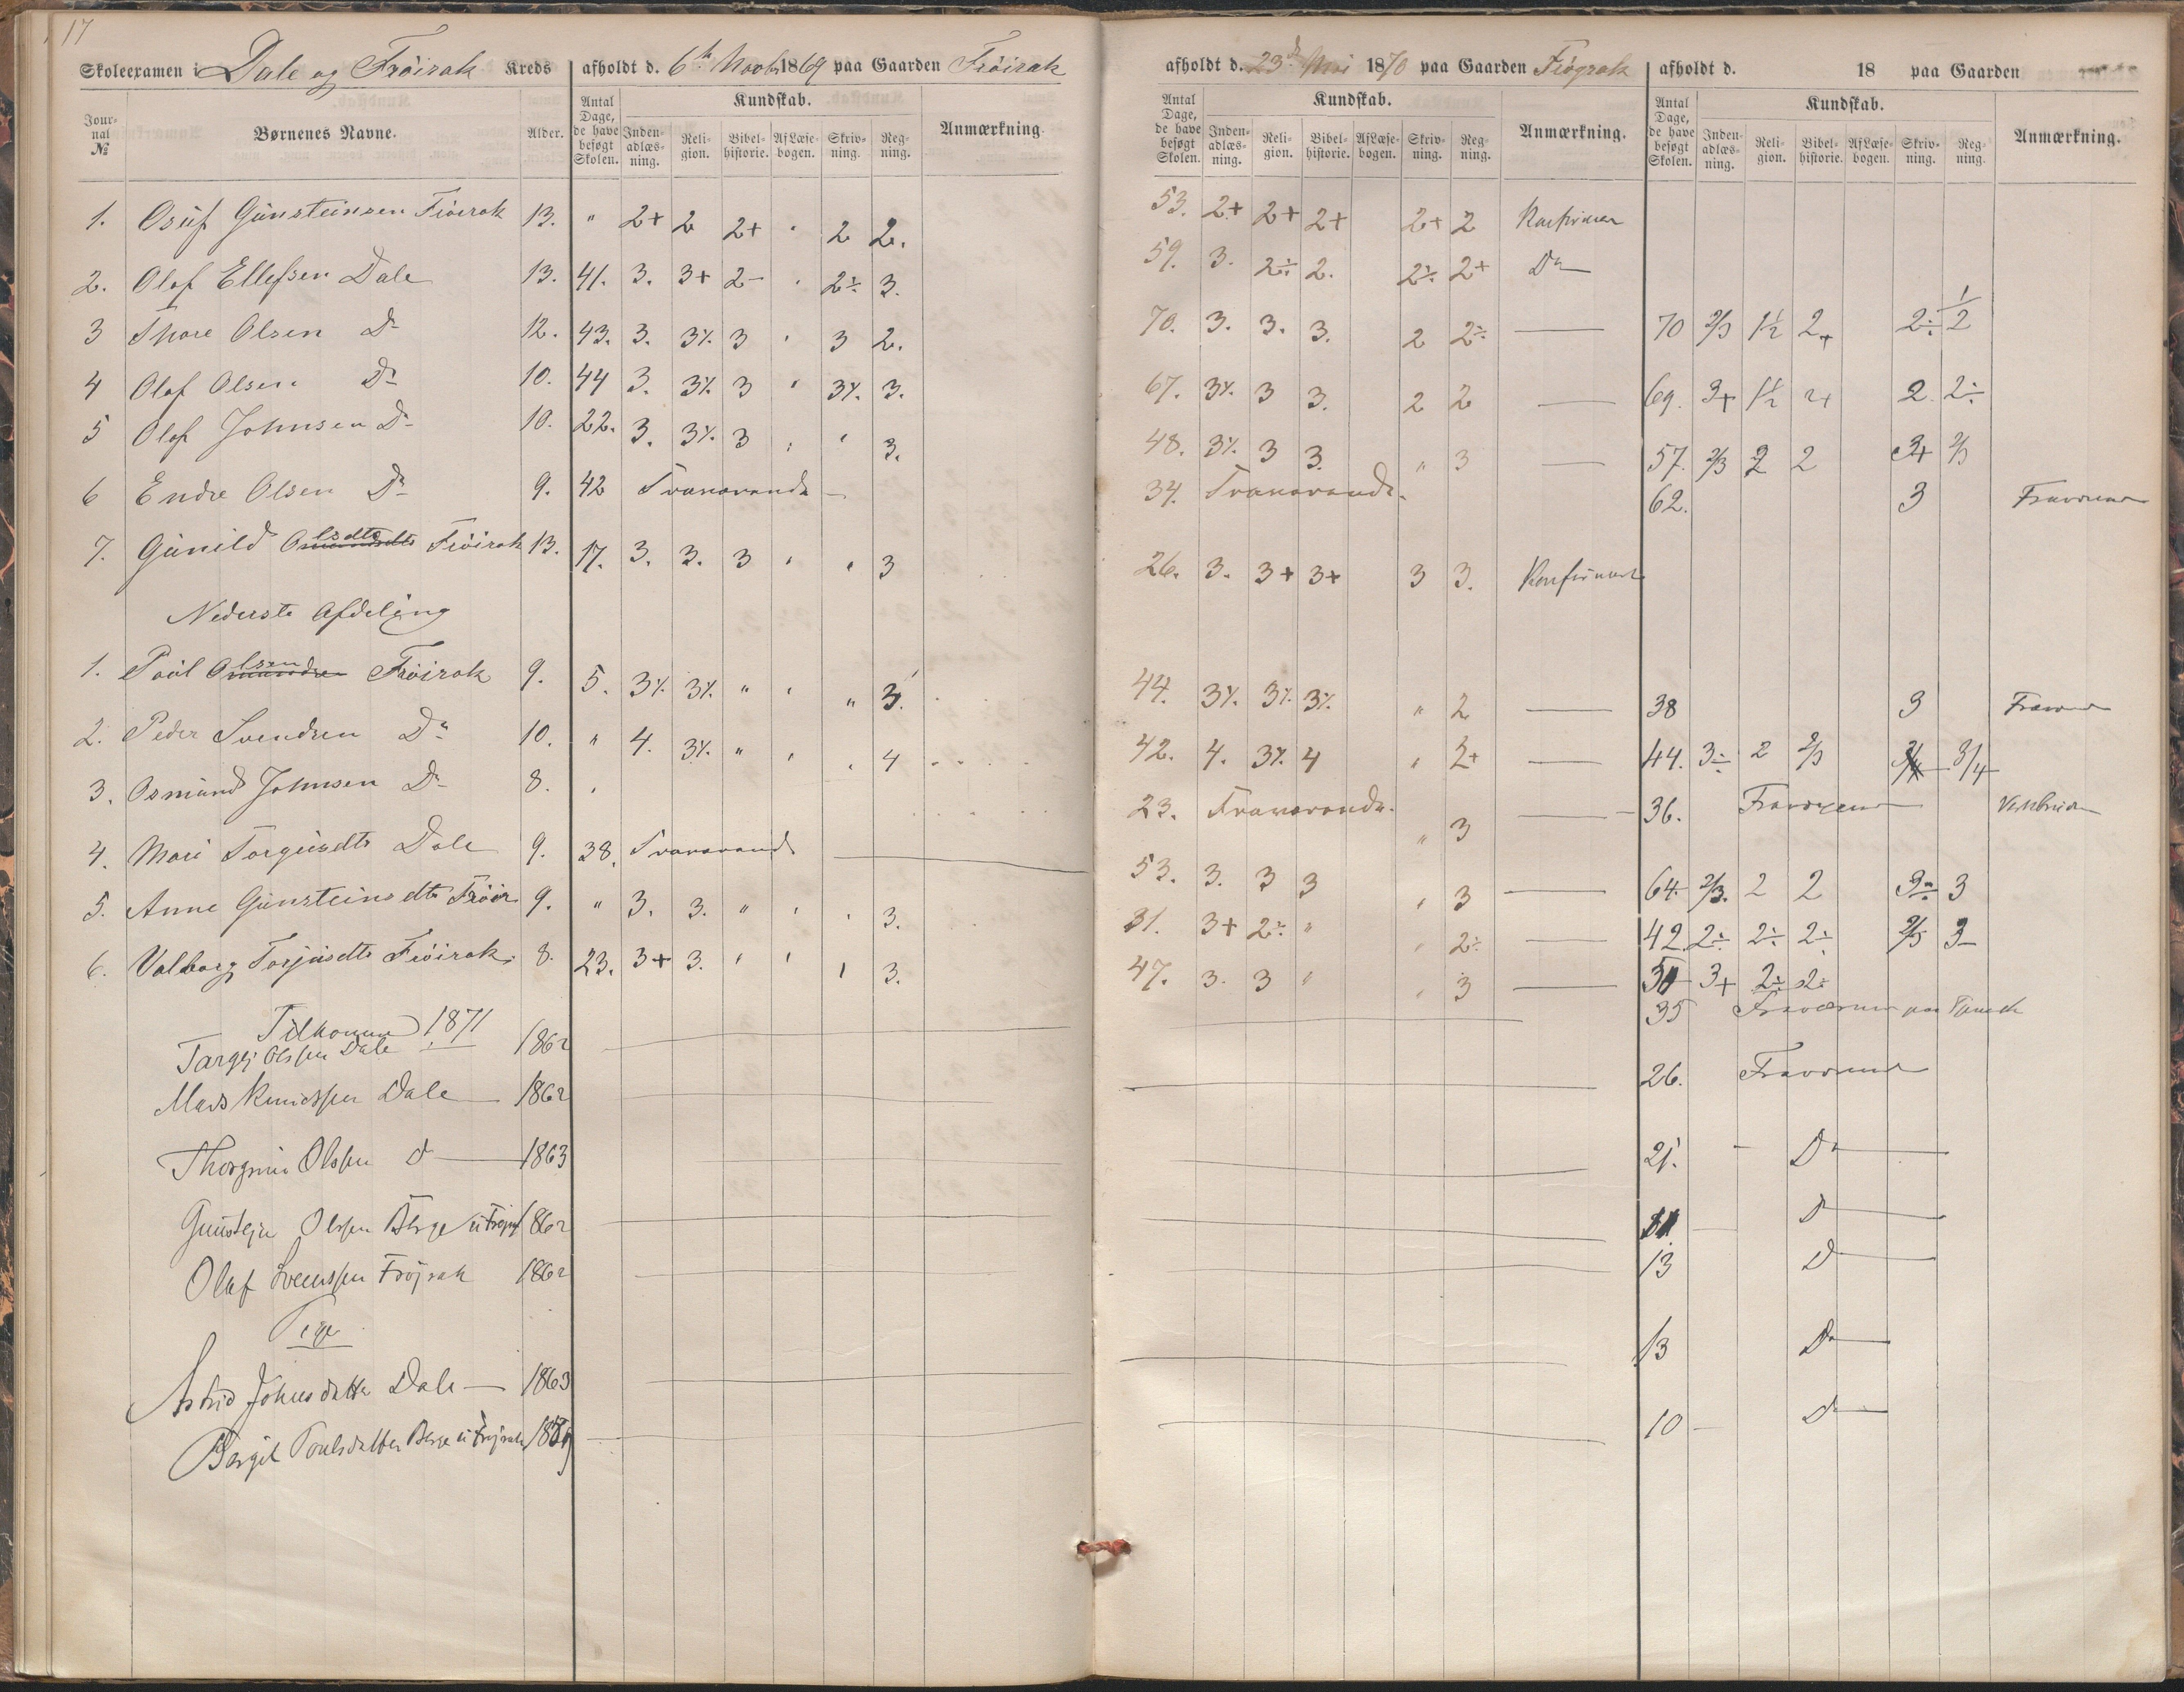 17
Skoleexamen i Dale og Frøirak Kreds afholdt d. 6te Novbr 1869 paa Gaarden Frøirak
Jour-nal № Børnenes Navne. Alder. Antal Dage, de have besøgt Skolen. Kundskab. Inden-adlæs-ning. Reli-gion. Bibel-historie. Af Læse-bogen. Skriv-ning. Reg-ning. Anmærkning.
1. Osuf Gunsteinsen Frøirak 13. " 2+ 2 2+ " 2 2.
2. Olaf Ellefsen Dale 13. 41. 3. 3+ 2- " 2÷ 3.
3 Thore Olsen Do 12. 43. 3. 3% 3 " 3 2.
4 Olaf Olsen Do 10. 44 3. 3% 3 " 3% 3.
5 Olaf Johnsen Do 10. 22. 3. 3% 3 " " 3.
6 Endre Olsen Do 9. 42 Fraværende
7. Gunild Olsdtr Frøirak 13. 17. 3. 3. 3 " " 3
Nederste Afdeling
1. Paul Olsen Frøirak 9. 5. 3% 3% " " " 3.
2. Peder Svendsen Do 10. " 4. 3% " " " 4
3. Osmund Johnsen Do 8. "
4. Mari Torgusdtr Dale 9. 38. Fraværende
5. Anne Gunsteinsdtr Frøir 9. " 3. 3. " " " 3.
6. Valborg Torjusdtr Frøirak. 8. 23. 3+ 3. " " " 3.
Tilkomne 1871
Targej Olssen Dale 1862
Mads Knudssen Dale 1862
Thorgrim Olssen do 1863
Gunstejn Olssen Berge u Frøjrak 1862
Olaf Svenssen Frøjrak 1862
Pige
Astrid Johnsdatter Dale 1863
Bergit Poulsdatter Berge u Frøjrak
afholdt d. 23de Mai 1870 paa Gaarden Frøgrak
Antal Dage, de have besøgt Skolen. Kundskab. Inden-adlæs-ning. Reli-gion. Bibel-historie. Af Læse-bogen. Skriv-ning. Reg-ning. Anmærkning.
53. 2+ 2+ 2+ 2+ 2 Konfirmer
59. 3. 2÷ 2. 2÷ 2+ Do
70. 3. 3. 3. 2 2÷
67. 3% 3 3. 2 2
48. 3% 3 3. " 3
34. Fraværende.
26. 3. 3+ 3+ 3 3. Konfirmert
44. 3% 3% 3% " 2
42. 4. 3% 4 " 2+
23. Fraværende. " 3
53. 3. 3 3 " 3
31. 3+ 2÷ " " 2÷
47. 3. 3 " " 3
afholdt d. 18 paa Gaarden
Antal Dage, de have besøgt Skolen. Kundskab. Inden-adlæs-ning. Reli-gion. Bibel-historie. Af Læse-bogen. Skriv-ning. Reg-ning. Anmærkning.
70 2/3 1½ 2+ 2÷ 1/2
69. 3+ 1½ 2+ 2 2÷
57. 2/3 2 2 3+ 2/3
62. 3 Fraværende
38 3 Fraværende
44. 3÷ 2 2/3 3/4
36. Fraværende
64. 2/3. 2 2 3÷ 3
42. 2÷ 2÷ 2÷ 2/3 3-
51 3+ 2÷ 2÷
35 Fraværende paa
26. Fraværende
21. Do
Do
13 Do
13 Do
10 Do